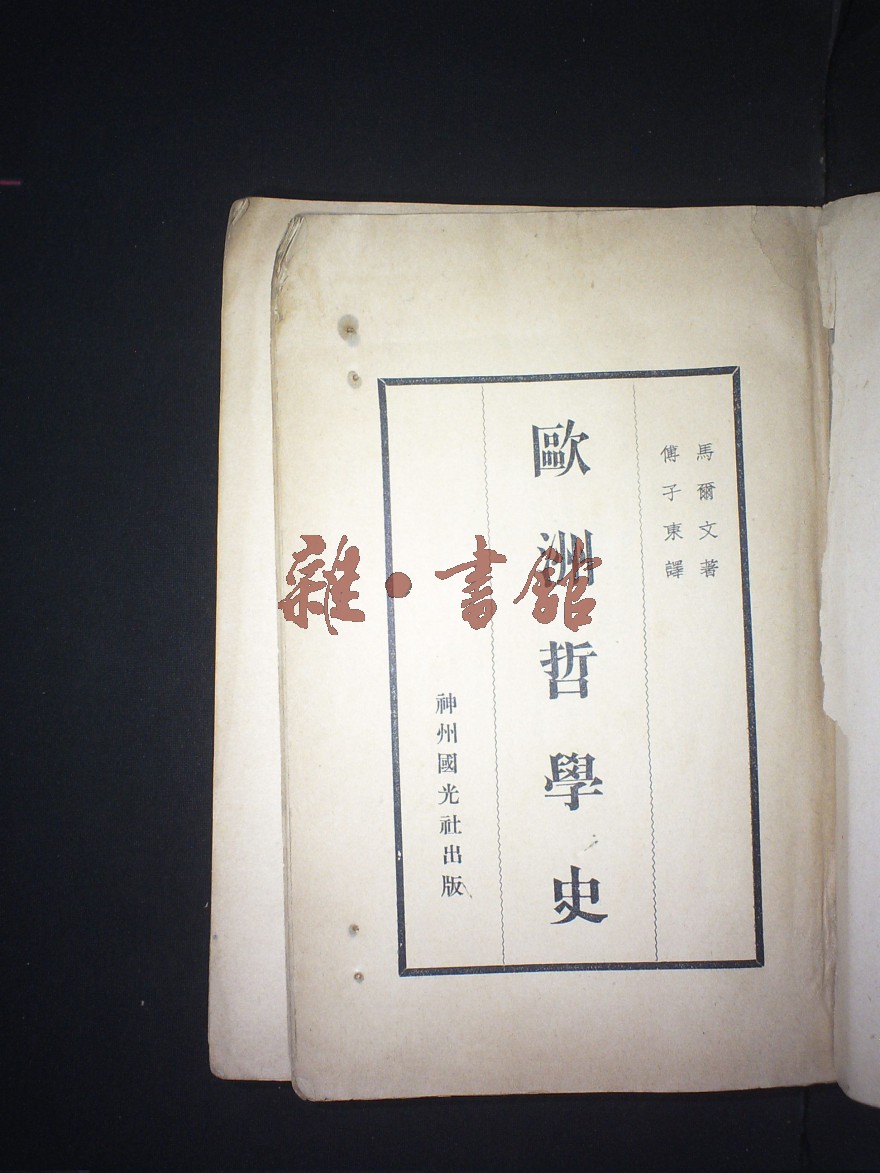 馬爾文著
傅子東譯
歐洲哲學史
神州國光社出版
雜·書館